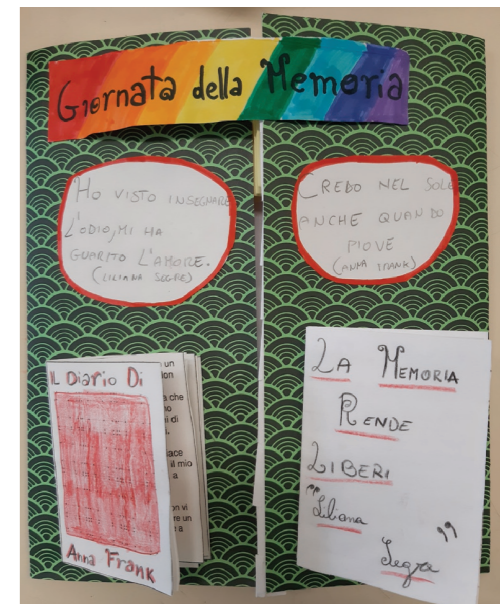 Giornata della Memoria
HO VISTO INSEGNARE
L'ODIO, MI HA
GUARITO L'AMORE.
(LILIANA SEGRE)
CREDO NEL SOLE
ANCHE QUANDO
PIOVE
(ANNA FRANK)
IL DIArio Di
Anna FranK
un
che
di
il mio
a
vi
un
a
LA MEMORIA
RENDE
LIBERI
"Liliana
Segre"